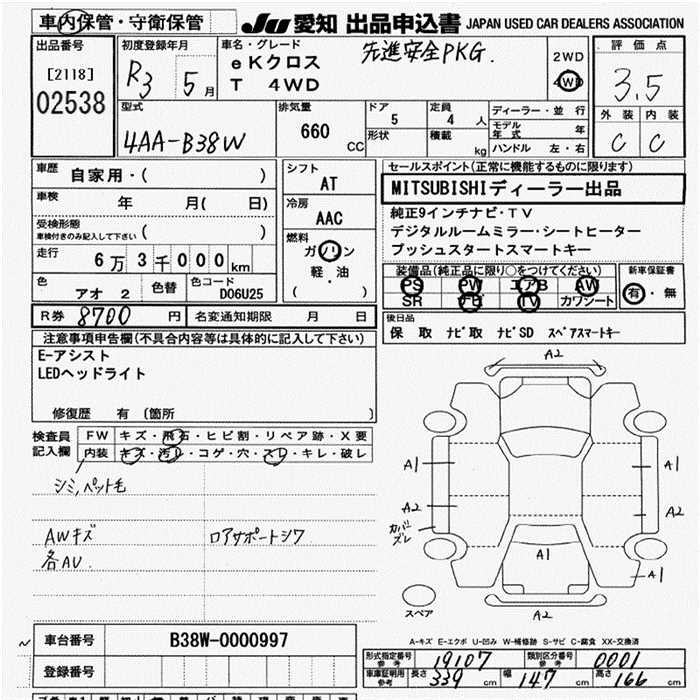 車内保管・守衛保管 JU 愛知 出品申込書 JAPAN USED CAR DEALERS ASSOCIATION
出品番号 初度登録年月 車名・グレード 先進安全PKG. 評価点
[2118] R3 5月 eKクロス 2WD 3.5
02538 T 4WD 4WD 外装 内装
C C
型式 排気量 ドア 定員 ディーラー・並行
4AA-B38W 660 CC 5 4 人 モデル年式 年
形状 積載 kg ハンドル 左・右
車歴 自家用・( ) シフト AT セールスポイント(正常に機能するものに限ります)
車検 年 月( 日) 冷房 AAC MITSUBISHIディーラー出品
受検形態 車検付きのみ記入して下さい ( ) 純正9インチナビ・TV
走行 6万3千000km 燃料 ガソリン デジタルルームミラー・シートヒーター
軽・油 プッシュスタートスマートキー
( )
色 アオ 2 色替 色コード D06U25 装備品(純正品に限り○をつけてください) 新車保証書
PS PW エアB AW 有・無
SR ナビ TV カワシート
R券 8700 円 名変通知期限 月 日 後日品
保 取 ナビ取 ナビSD スペアスマートキー
注意事項申告欄(不具合内容等は具体的に記入して下さい)
E-アシスト
LEDヘッドライト
修復歴 有 〔箇所 〕
検査員記入欄 FW キズ・飛石・ヒビ割・リペア跡・X要
内装 キズ・汚レ・コゲ・穴・スレ・キレ・破レ
シミ,ペット毛
AWキズ ロアサポートシワ
各AU.
A2
A1 A1
A2 A2
カバーズレ
A1
A1
スペア A2
A-キズ E-エクボ U-凹み W-補修跡 S-サビ C-腐食 XX-交換済
車台番号 B38W-0000997
登録番号
形式指定番号 参考 19107 類別区分番号 参考 0001
車庫証明用 参考 長さ 339 cm 幅 147 cm 高さ 166 cm